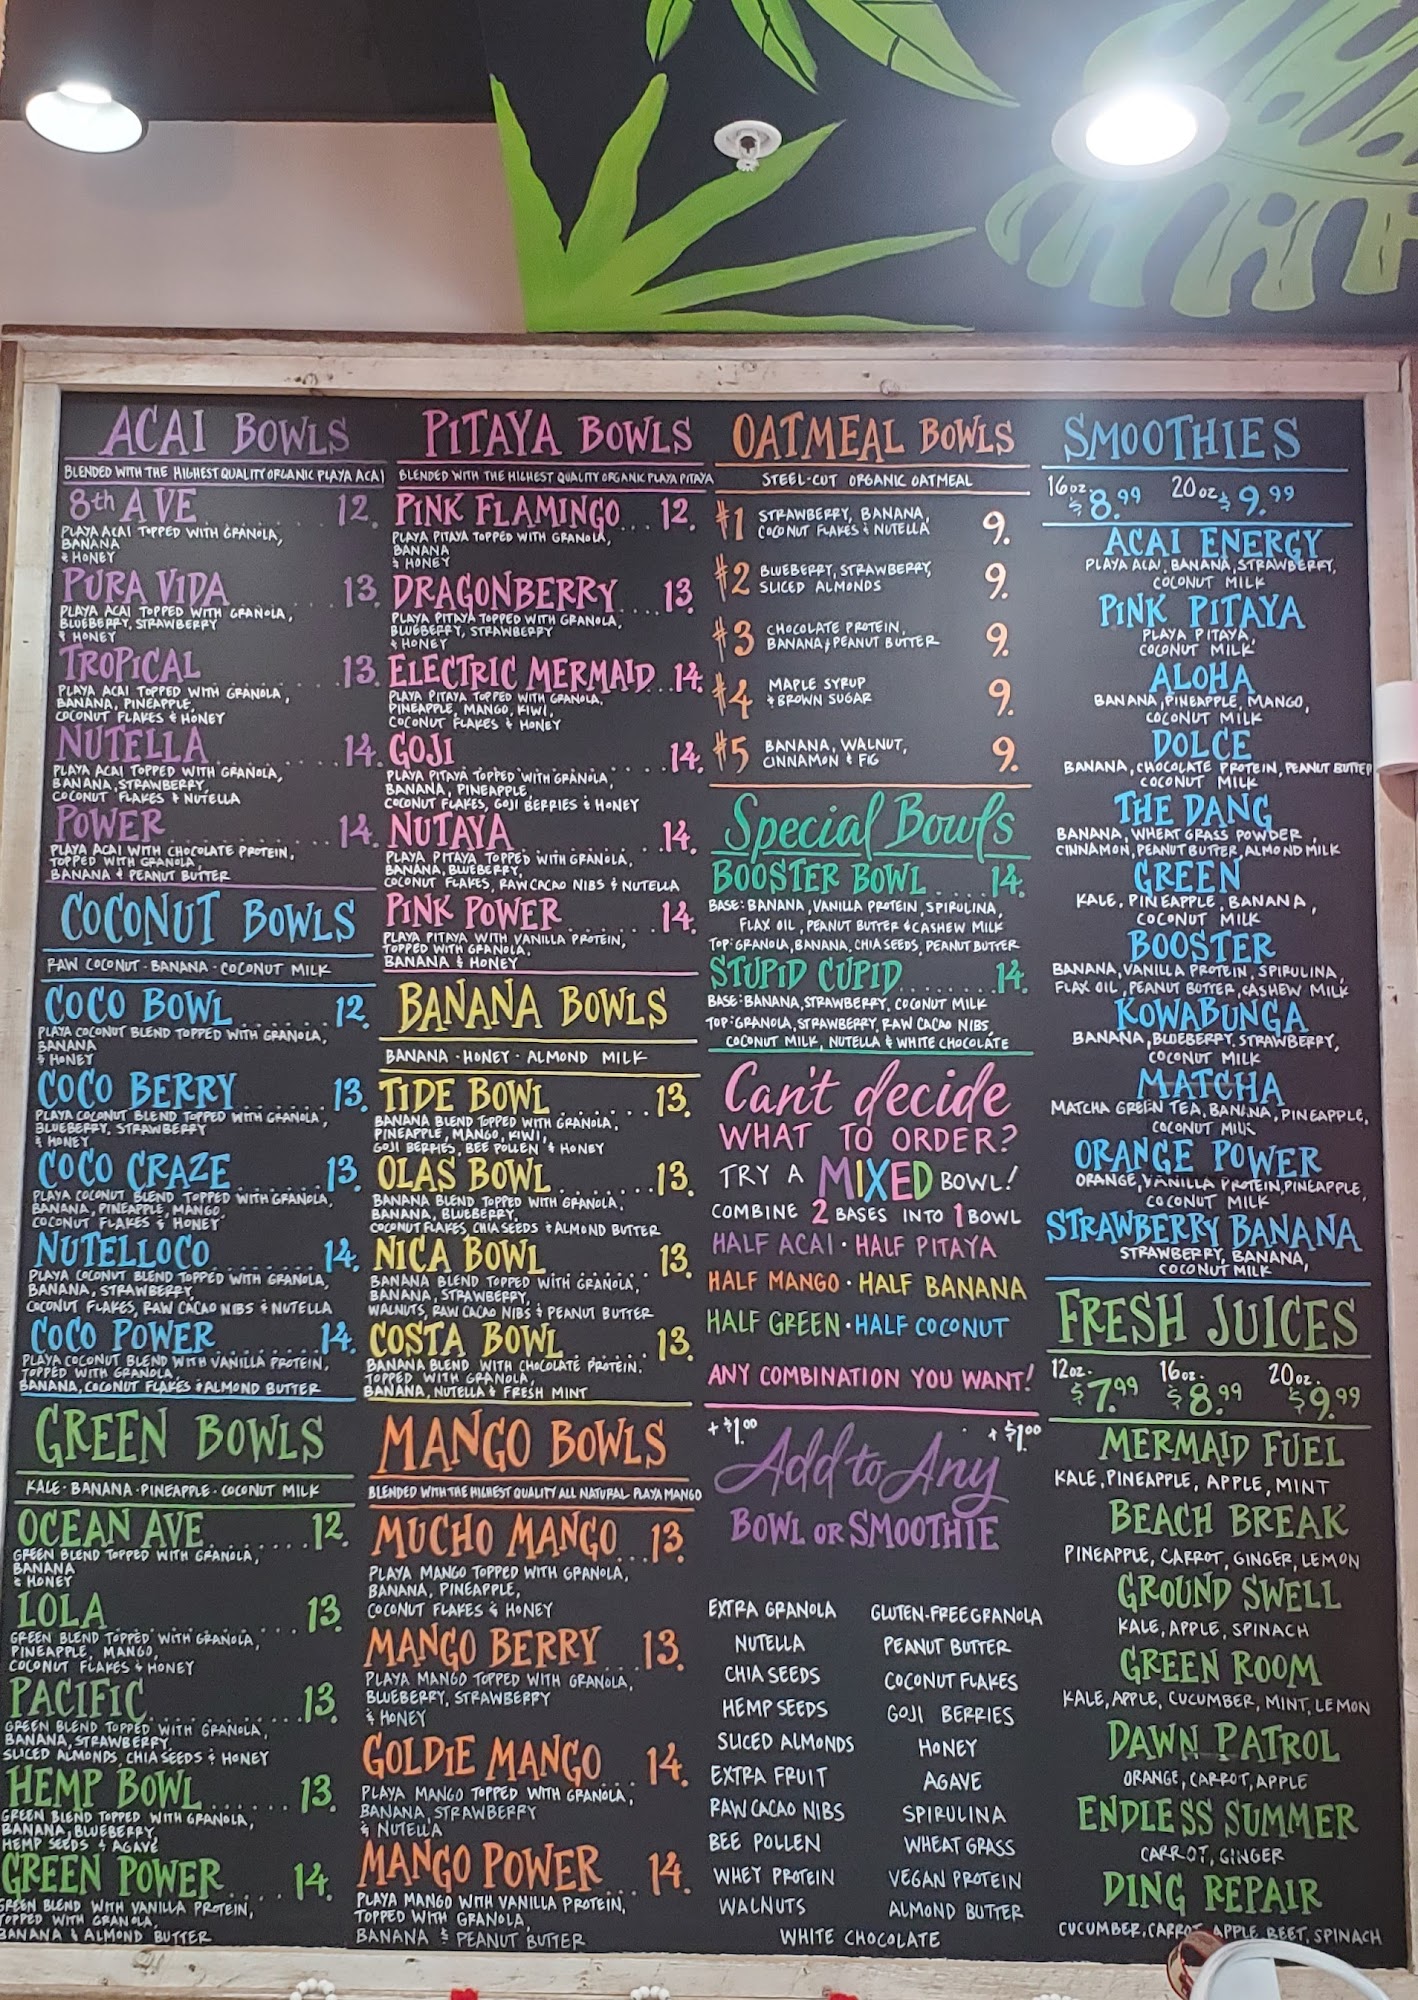 ACAI BOWLS
BLENDED WITH THE HIGHEST QUALITY ORGANIC PLAYA ACAI
8th AVE 12.
PLAYA ACAI TOPPED WITH GRANOLA,
BANANA
& HONEY
PURA VIDA 13.
PLAYA ACAI TOPPED WITH GRANOLA,
BLUEBERRY, STRAWBERRY
& HONEY
TROPICAL 13.
PLAYA ACAI TOPPED WITH GRANOLA,
BANANA, PINEAPPLE,
COCONUT FLAKES & HONEY
NUTELLA 14.
PLAYA ACAI TOPPED WITH GRANOLA,
BANANA, STRAWBERRY,
COCONUT FLAKES & NUTELLA
POWER 14.
PLAYA ACAI WITH CHOCOLATE PROTEIN,
TOPPED WITH GRANOLA,
BANANA & PEANUT BUTTER
COCONUT BOWLS
RAW COCONUT - BANANA - COCONUT MILK
COCO BOWL 12.
PLAYA COCONUT BLEND TOPPED WITH GRANOLA,
BANANA
& HONEY
COCO BERRY 13.
PLAYA COCONUT BLEND TOPPED WITH GRANOLA,
BLUEBERRY, STRAWBERRY
& HONEY
COCO CRAZE 13.
PLAYA COCONUT BLEND TOPPED WITH GRANOLA,
BANANA, PINEAPPLE, MANGO,
COCONUT FLAKES & HONEY
NUTELLOCO 14.
PLAYA COCONUT BLEND TOPPED WITH GRANOLA,
BANANA, STRAWBERRY,
COCONUT FLAKES, RAW CACAO NIBS & NUTELLA
COCO POWER 14.
PLAYA COCONUT BLEND WITH VANILLA PROTEIN,
TOPPED WITH GRANOLA,
BANANA, COCONUT FLAKES & ALMOND BUTTER
GREEN BOWLS
KALE - BANANA - PINEAPPLE - COCONUT MILK
OCEAN AVE 12.
GREEN BLEND TOPPED WITH GRANOLA,
BANANA
& HONEY
LOLA 13.
GREEN BLEND TOPPED WITH GRANOLA,
PINEAPPLE, MANGO,
COCONUT FLAKES & HONEY
PACIFIC 13.
GREEN BLEND TOPPED WITH GRANOLA,
BANANA, STRAWBERRY,
SLICED ALMONDS, CHIA SEEDS & HONEY
HEMP BOWL 13.
GREEN BLEND TOPPED WITH GRANOLA,
BANANA, BLUEBERRY,
HEMP SEEDS & AGAVE
GREEN POWER 14.
GREEN BLEND WITH VANILLA PROTEIN,
TOPPED WITH GRANOLA,
BANANA & ALMOND BUTTER
PITAYA BOWLS
BLENDED WITH THE HIGHEST QUALITY ORGANIC PLAYA PITAYA
PINK FLAMINGO 12.
PLAYA PITAYA TOPPED WITH GRANOLA,
BANANA
& HONEY
DRAGONBERRY 13.
PLAYA PITAYA TOPPED WITH GRANOLA,
BLUEBERRY, STRAWBERRY
& HONEY
ELECTRIC MERMAID 14.
PLAYA PITAYA TOPPED WITH GRANOLA,
PINEAPPLE, MANGO, KIWI,
COCONUT FLAKES & HONEY
GOJI 14.
PLAYA PITAYA TOPPED WITH GRANOLA,
BANANA, PINEAPPLE,
COCONUT FLAKES, GOJI BERRIES & HONEY
NUTAYA 14.
PLAYA PITAYA TOPPED WITH GRANOLA,
BANANA, BLUEBERRY,
COCONUT FLAKES, RAW CACAO NIBS & NUTELLA
PINK POWER 14.
PLAYA PITAYA WITH VANILLA PROTEIN,
TOPPED WITH GRANOLA,
BANANA & HONEY
BANANA BOWLS
BANANA - HONEY - ALMOND MILK
TIDE BOWL 13.
BANANA BLEND TOPPED WITH GRANOLA,
PINEAPPLE, MANGO, KIWI,
GOJI BERRIES, BEE POLLEN & HONEY
OLAS BOWL 13.
BANANA BLEND TOPPED WITH GRANOLA,
BANANA, BLUEBERRY,
COCONUT FLAKES, CHIA SEEDS & ALMOND BUTTER
NICA BOWL 13.
BANANA BLEND TOPPED WITH GRANOLA,
BANANA, STRAWBERRY,
WALNUTS, RAW CACAO NIBS & PEANUT BUTTER
COSTA BOWL 13.
BANANA BLEND WITH CHOCOLATE PROTEIN,
TOPPED WITH GRANOLA,
BANANA, NUTELLA & FRESH MINT
MANGO BOWLS
BLENDED WITH THE HIGHEST QUALITY ALL NATURAL PLAYA MANGO
MUCHO MANGO 13.
PLAYA MANGO TOPPED WITH GRANOLA,
BANANA, PINEAPPLE,
COCONUT FLAKES & HONEY
MANGO BERRY 13.
PLAYA MANGO TOPPED WITH GRANOLA,
BLUEBERRY, STRAWBERRY
& HONEY
GOLDIE MANGO 14.
PLAYA MANGO TOPPED WITH GRANOLA,
BANANA, STRAWBERRY
& NUTELLA
MANGO POWER 14.
PLAYA MANGO WITH VANILLA PROTEIN,
TOPPED WITH GRANOLA,
BANANA & PEANUT BUTTER
OATMEAL BOWLS
STEEL-CUT ORGANIC OATMEAL
#1 STRAWBERRY, BANANA, 9.
COCONUT FLAKES & NUTELLA
#2 BLUEBERRY, STRAWBERRY, 9.
SLICED ALMONDS
#3 CHOCOLATE PROTEIN, 9.
BANANA & PEANUT BUTTER
#4 MAPLE SYRUP 9.
& BROWN SUGAR
#5 BANANA, WALNUT, 9.
CINNAMON & FIG
Special Bowls
BOOSTER BOWL 14.
BASE: BANANA, VANILLA PROTEIN, SPIRULINA,
FLAX OIL, PEANUT BUTTER & CASHEW MILK
TOP: GRANOLA, BANANA, CHIA SEEDS, PEANUT BUTTER
STUPID CUPID 14.
BASE: BANANA, STRAWBERRY, COCONUT MILK
TOP: GRANOLA, STRAWBERRY, RAW CACAO NIBS,
COCONUT MILK, NUTELLA & WHITE CHOCOLATE
Can't decide
WHAT TO ORDER?
TRY A MIXED BOWL!
COMBINE 2 BASES INTO 1 BOWL
HALF ACAI · HALF PITAYA
HALF MANGO · HALF BANANA
HALF GREEN · HALF COCONUT
ANY COMBINATION YOU WANT!
+ $1.00 + $1.00
Add to Any
BOWL OR SMOOTHIE
EXTRA GRANOLA GLUTEN-FREE GRANOLA
NUTELLA PEANUT BUTTER
CHIA SEEDS COCONUT FLAKES
HEMP SEEDS GOJI BERRIES
SLICED ALMONDS HONEY
EXTRA FRUIT AGAVE
RAW CACAO NIBS SPIRULINA
BEE POLLEN WHEAT GRASS
WHEY PROTEIN VEGAN PROTEIN
WALNUTS ALMOND BUTTER
WHITE CHOCOLATE
SMOOTHIES
16oz. $8.99 20oz. $9.99
ACAI ENERGY
PLAYA ACAI, BANANA, STRAWBERRY,
COCONUT MILK
PINK PITAYA
PLAYA PITAYA,
COCONUT MILK
ALOHA
BANANA, PINEAPPLE, MANGO,
COCONUT MILK
DOLCE
BANANA, CHOCOLATE PROTEIN, PEANUT BUTTER
COCONUT MILK
THE DANG
BANANA, WHEAT GRASS POWDER,
CINNAMON, PEANUT BUTTER, ALMOND MILK
GREEN
KALE, PINEAPPLE, BANANA,
COCONUT MILK
BOOSTER
BANANA, VANILLA PROTEIN, SPIRULINA,
FLAX OIL, PEANUT BUTTER, CASHEW MILK
KOWABUNGA
BANANA, BLUEBERRY, STRAWBERRY,
COCONUT MILK
MATCHA
MATCHA GREEN TEA, BANANA, PINEAPPLE,
COCONUT MILK
ORANGE POWER
ORANGE, VANILLA PROTEIN, PINEAPPLE,
COCONUT MILK
STRAWBERRY BANANA
STRAWBERRY, BANANA,
COCONUT MILK
FRESH JUICES
12oz. $7.99 16oz. $8.99 20oz. $9.99
MERMAID FUEL
KALE, PINEAPPLE, APPLE, MINT
BEACH BREAK
PINEAPPLE, CARROT, GINGER, LEMON
GROUND SWELL
KALE, APPLE, SPINACH
GREEN ROOM
KALE, APPLE, CUCUMBER, MINT, LEMON
DAWN PATROL
ORANGE, CARROT, APPLE
ENDLESS SUMMER
CARROT, GINGER
DING REPAIR
CUCUMBER, CARROT, APPLE, BEET, SPINACH